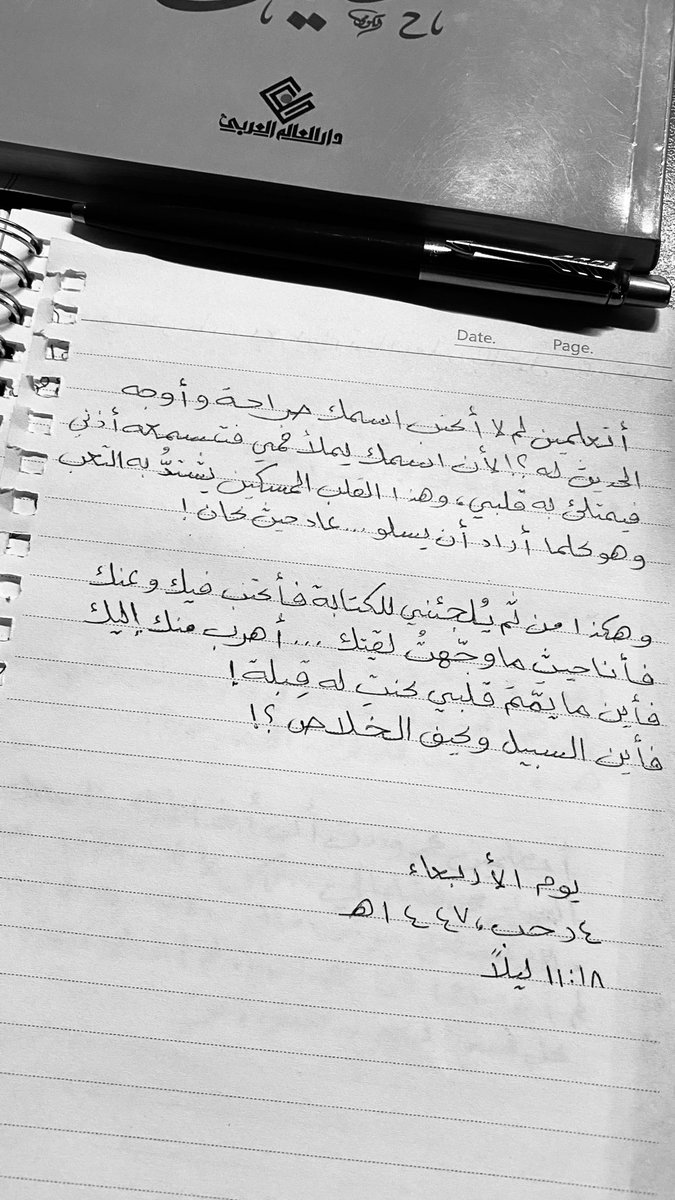 دار العالم العربي
Date. Page.
أتعلمين لم لا أكتب اسمك صراحة وأوجه
الحديث له؟! لأن اسمك يملأ فمي فتسمعه أذني
فيمتلئ به قلبي، وهذا القلب المسكين يشتدُّ به التعب
وهو كلما أراد أن يسلو... عاد حيث كان!
وهكذا من ثَمّ يُلجئني للكتابة فأكتب فيك وعنك
فأنا حيث ما وجّهتُ لقيتك... أهرب منك إليك
فأين ما يمّمَ قلبي كنتِ له قِبلة!
فأين السبيل وكيف الخلاص؟!
يوم الأربعاء
٤ رجب، ١٤٤٧هـ
١١:١٨ ليلاً